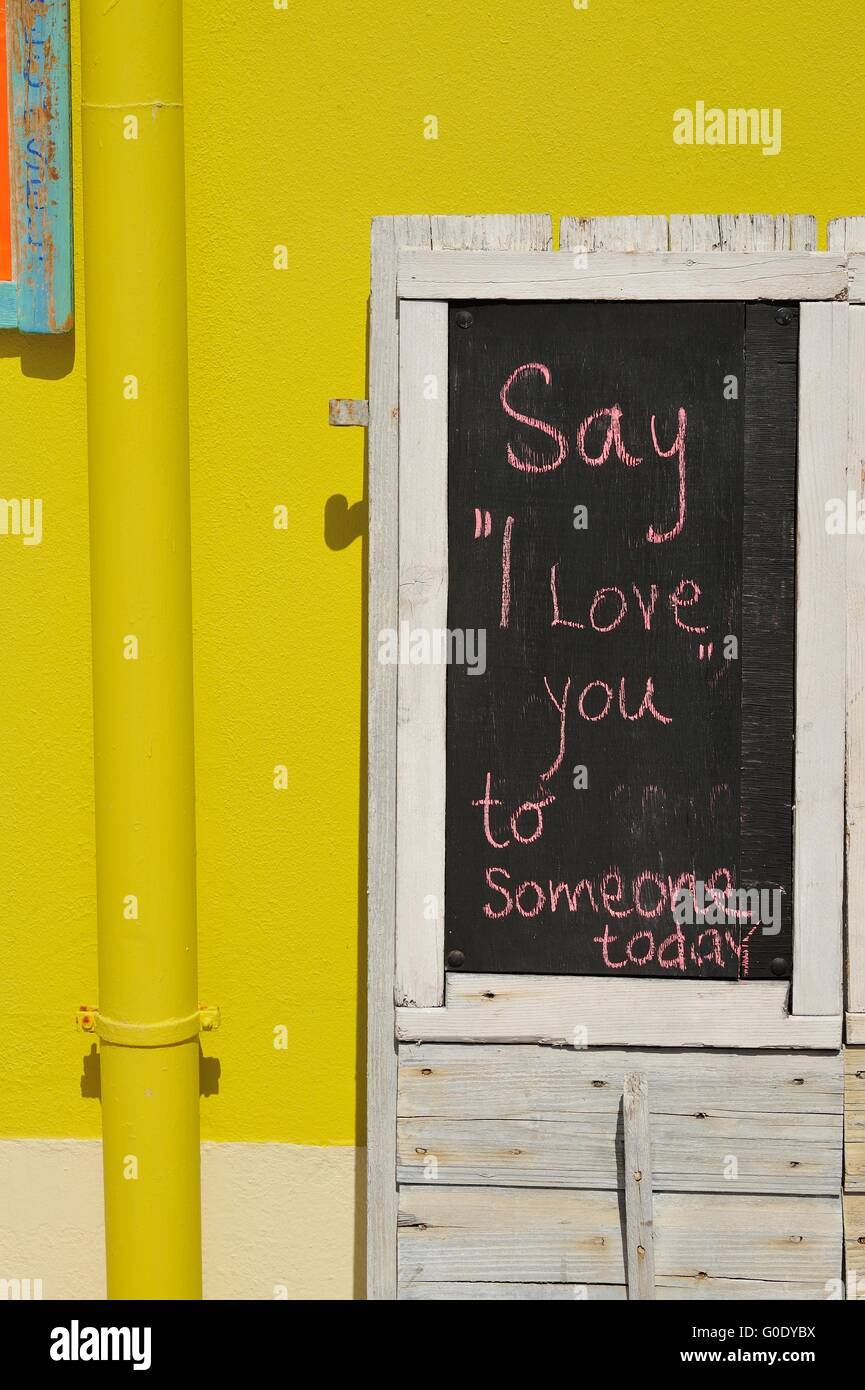 Say
"I Love
you"
to
someone
today
alamy
alamy
Image ID: G0DYBX
www.alamy.com